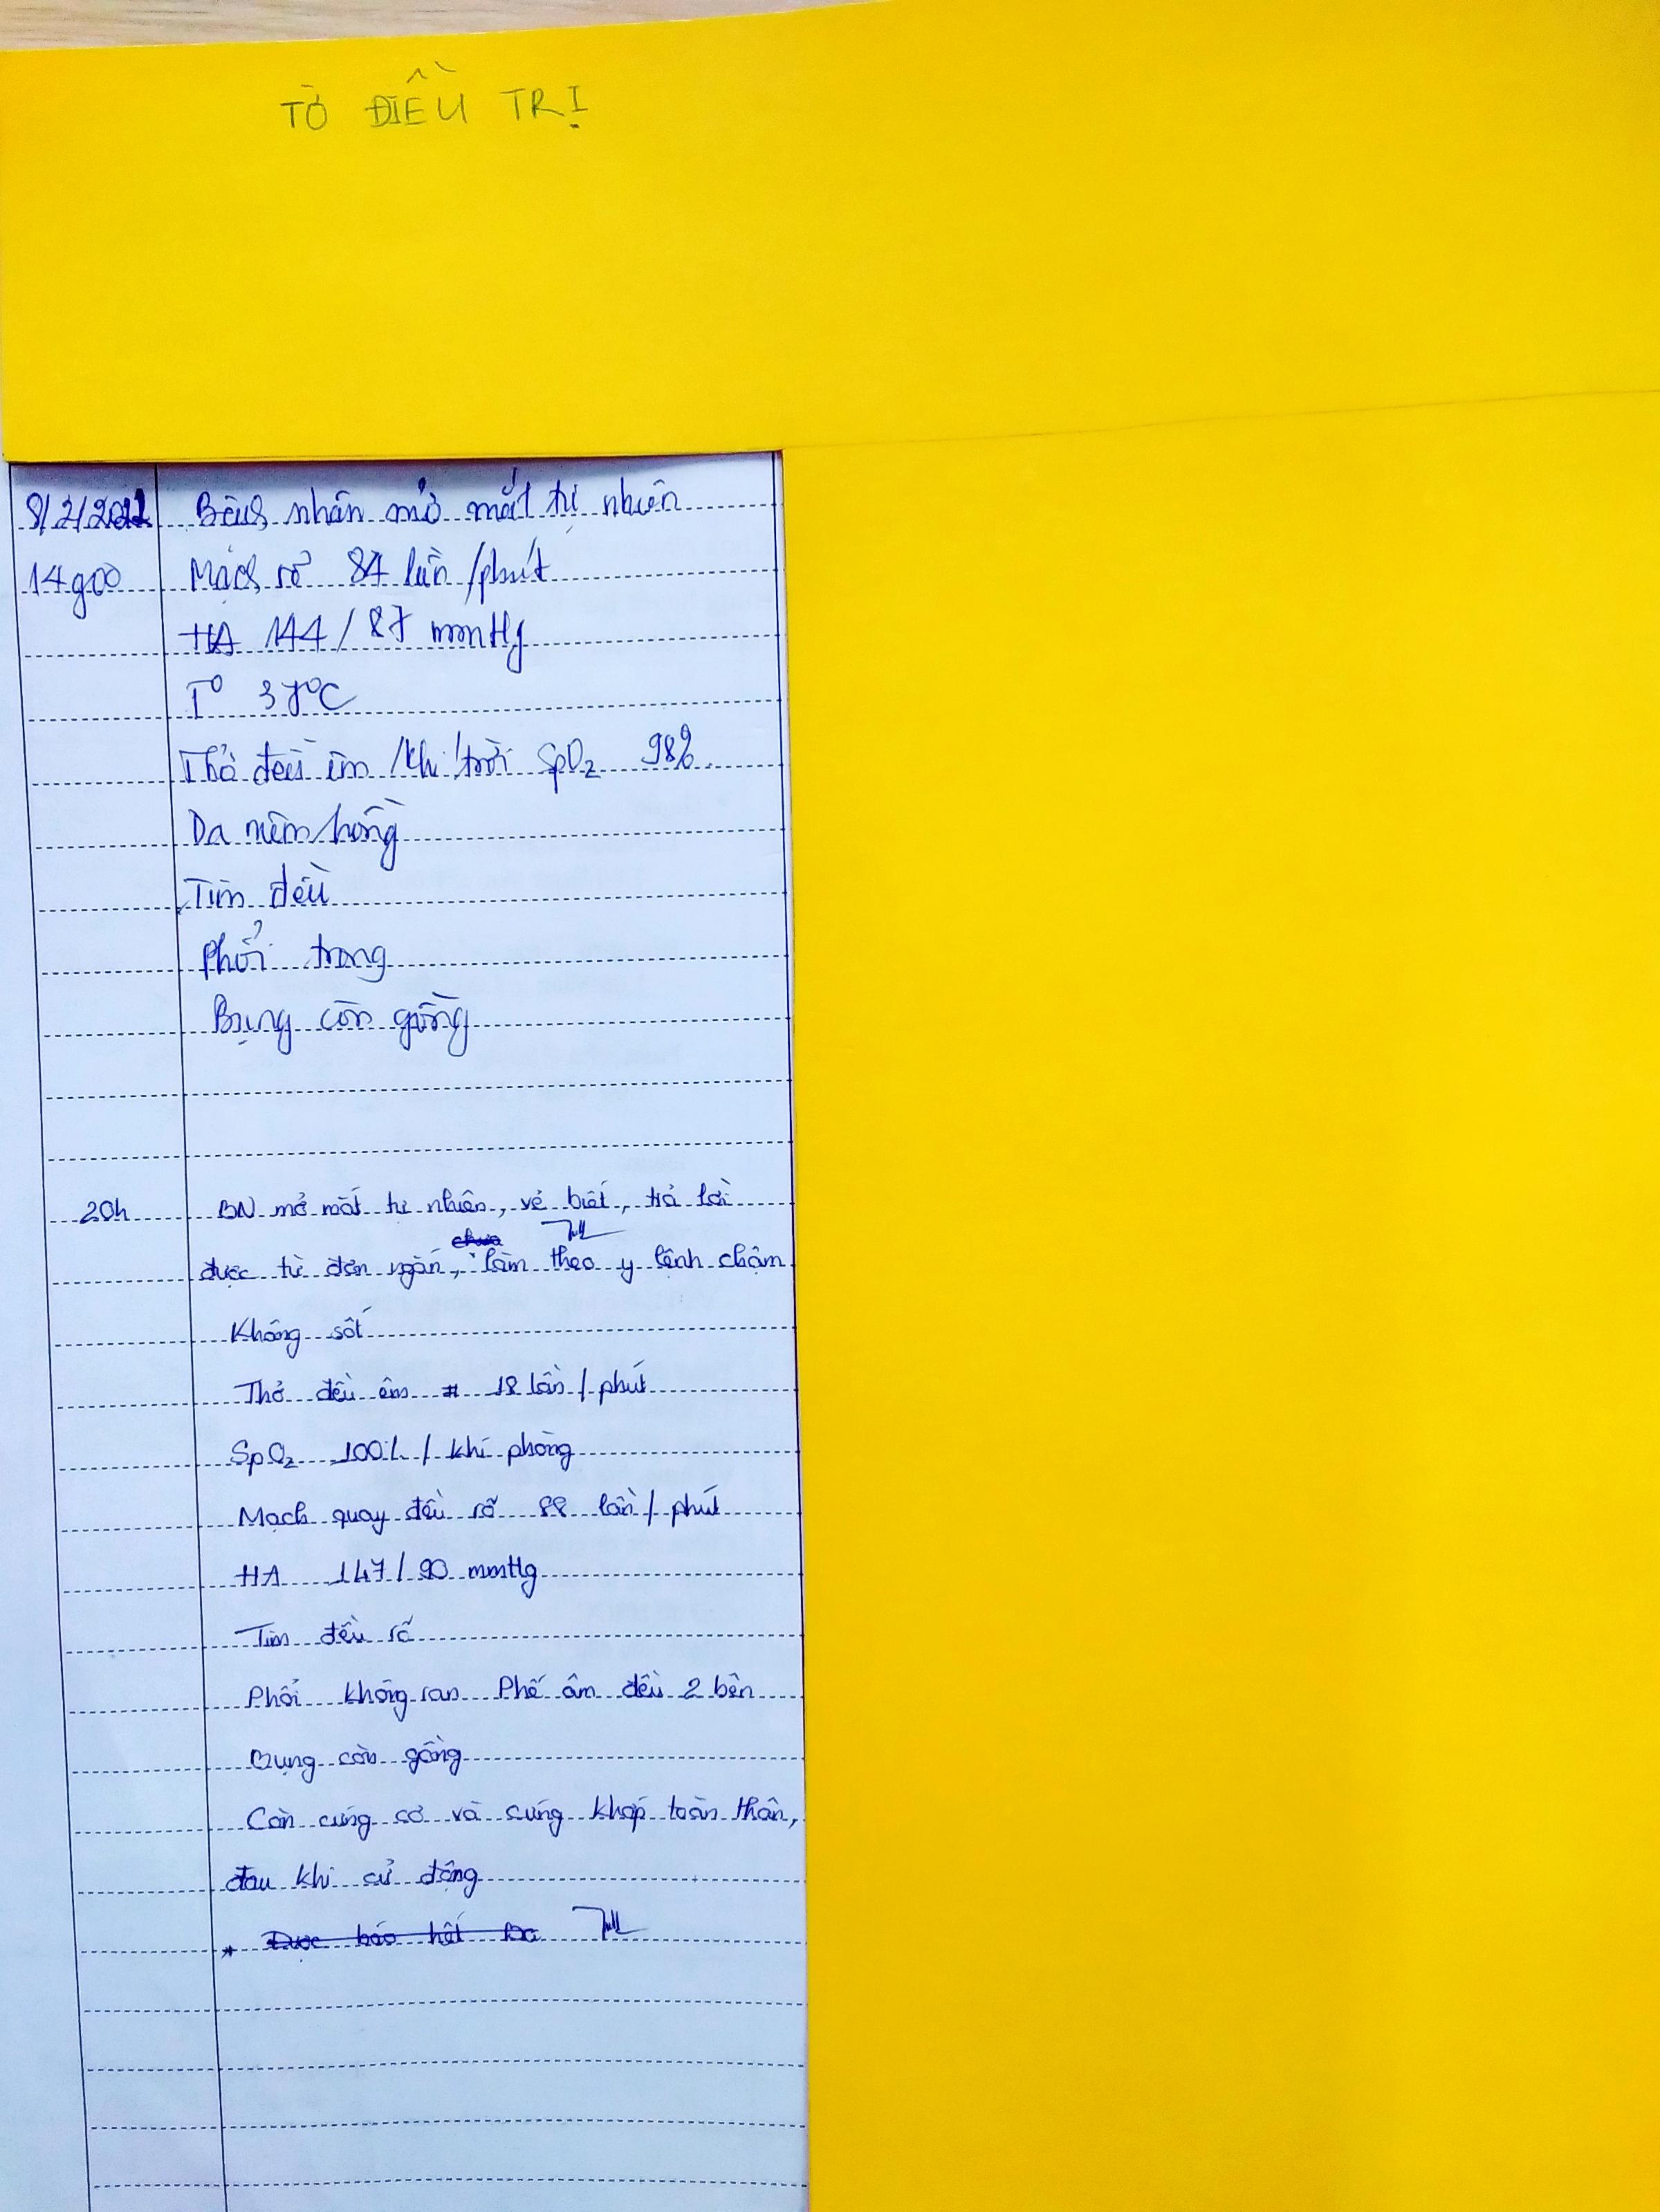 TỜ ĐIỀU TRỊ
8/2/2022 Bệnh nhân mở mắt tự nhiên
14g00 Mạch rõ 84 lần/phút
HA 144/87 mmHg
T° 37°C
Thở đều êm/khí trời SpO2 98%
Da niêm hồng
Tim đều
Phổi trong
Bụng còn gồng
20h BN mở mắt tự nhiên, vẻ biết, trả lời
được từ đơn ngắn, làm theo y lệnh chậm
Không sốt
Thở đều êm # 18 lần/phút
SpO2 100% / khí phòng
Mạch quay đều rõ 88 lần/phút
HA 147/90 mmHg
Tim đều rõ
Phổi không ran Phế âm đều 2 bên
Bụng còn gồng
Còn cứng cơ và cứng khớp toàn thân,
đau khi cử động
* Được báo hết